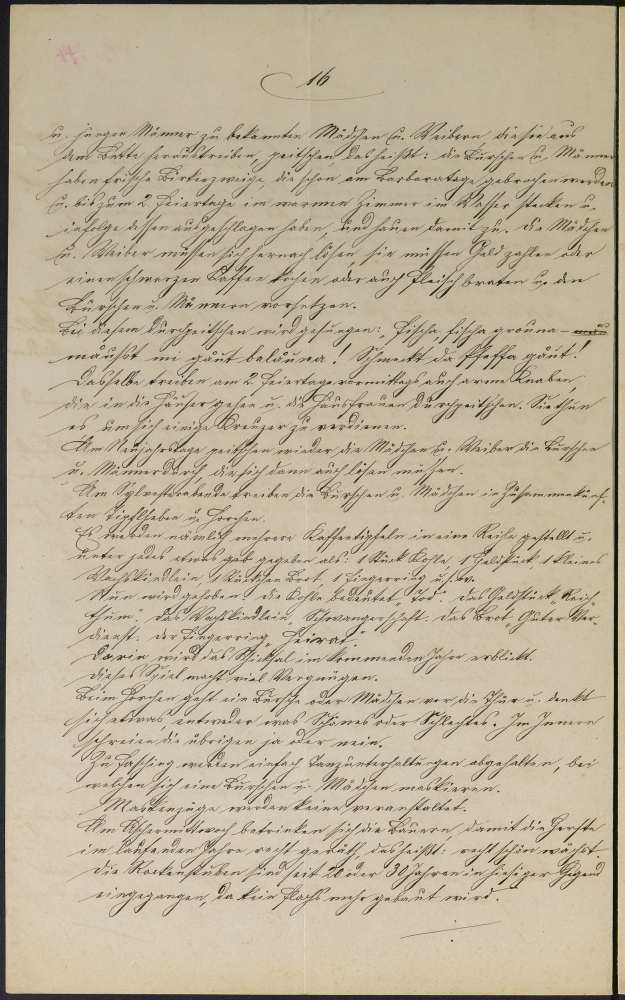 16
u. junger Männer zu bekannten Mädchen u. Weibern die sie aus
dem Bette heraustreiben, peitschen das heißt: die Burschen u. Männer
haben frische Birkenzweige die schon am Barbaratage gebrochen werden
u. bis zum 2. Feiertage im warmen Zimmer im Wasser stecken u.
infolge dessen ausgeschlagen haben, und hauen damit zu. Die Mädchen
u. Weiber müssen sich hernach lösen, sie müssen Geld zahlen oder
einen schwarzen Kaffee kochen oder auch Fleisch braten u. den
Burschen u. Männern vorsetzen.
Bei diesem Durchpeitschen wird gesungen: „Fischa, fischa grouna –
mäußt mi gäut baläuna! Schmeckt da Pfeffa gäut!
Dasselbe treiben am 2. Feiertage vormittags auch arme Knaben,
die in die Häuser gehen u. die Hausfrauen durchpeitschen. Sie thun
es um sich einige Kreuzer zu verdienen.
Am Neujahrstage peitschen wieder die Mädchen u. Weiber die Burschen
u. Männer durch, die sich dann auch lösen müssen.
Am Sylvesterabende treiben die Burschen u. Mädchen in Zusammenkünf-
ten Tipflheben u. Horchen.
Es werden nämlich mehrere Kaffeetipfeln in eine Reihe gestellt u.
unter jedes etwas gegeben als: 1 Stück Kohle, 1 Geldstück, 1 kleines
Wachskindlein, 1 Stückchen Brot, 1 Fingerring u.s.w.
Nun wird gehoben. Die Kohle bedeutet „Tod". Das Geldstück „Reich-
thum". Das Wachskindlein „Schwangerschaft. Das Brot „Guter Ver-
dienst. Der Fingerring „Heirat".
Darin wird das Schicksal im kommenden Jahre erblickt.
Dieses Spiel macht viel Vergnügen.
Beim Horchen geht ein Bursche oder Mädchen vor die Thür u. denkt
sich etwas, entweder was Schönes oder Schlechtes. Im Innern
schreien die übrigen ja oder nein.
Zu Fasching werden einfach Tanzunterhaltungen abgehalten, bei
welchen sich eine Burschen u. Mädchen maskieren.
Maskenzüge werden keine veranstaltet.
Am Aschermittwoch betrinken sich die Bauern, damit die Gerste
im laufenden Jahre recht geräth, das heißt: recht schön wächst.
Die Rockenstuben sind seit 20 oder 30 Jahren in hiesiger Gegend
eingegangen, da kein Flachs mehr gebaut wird.